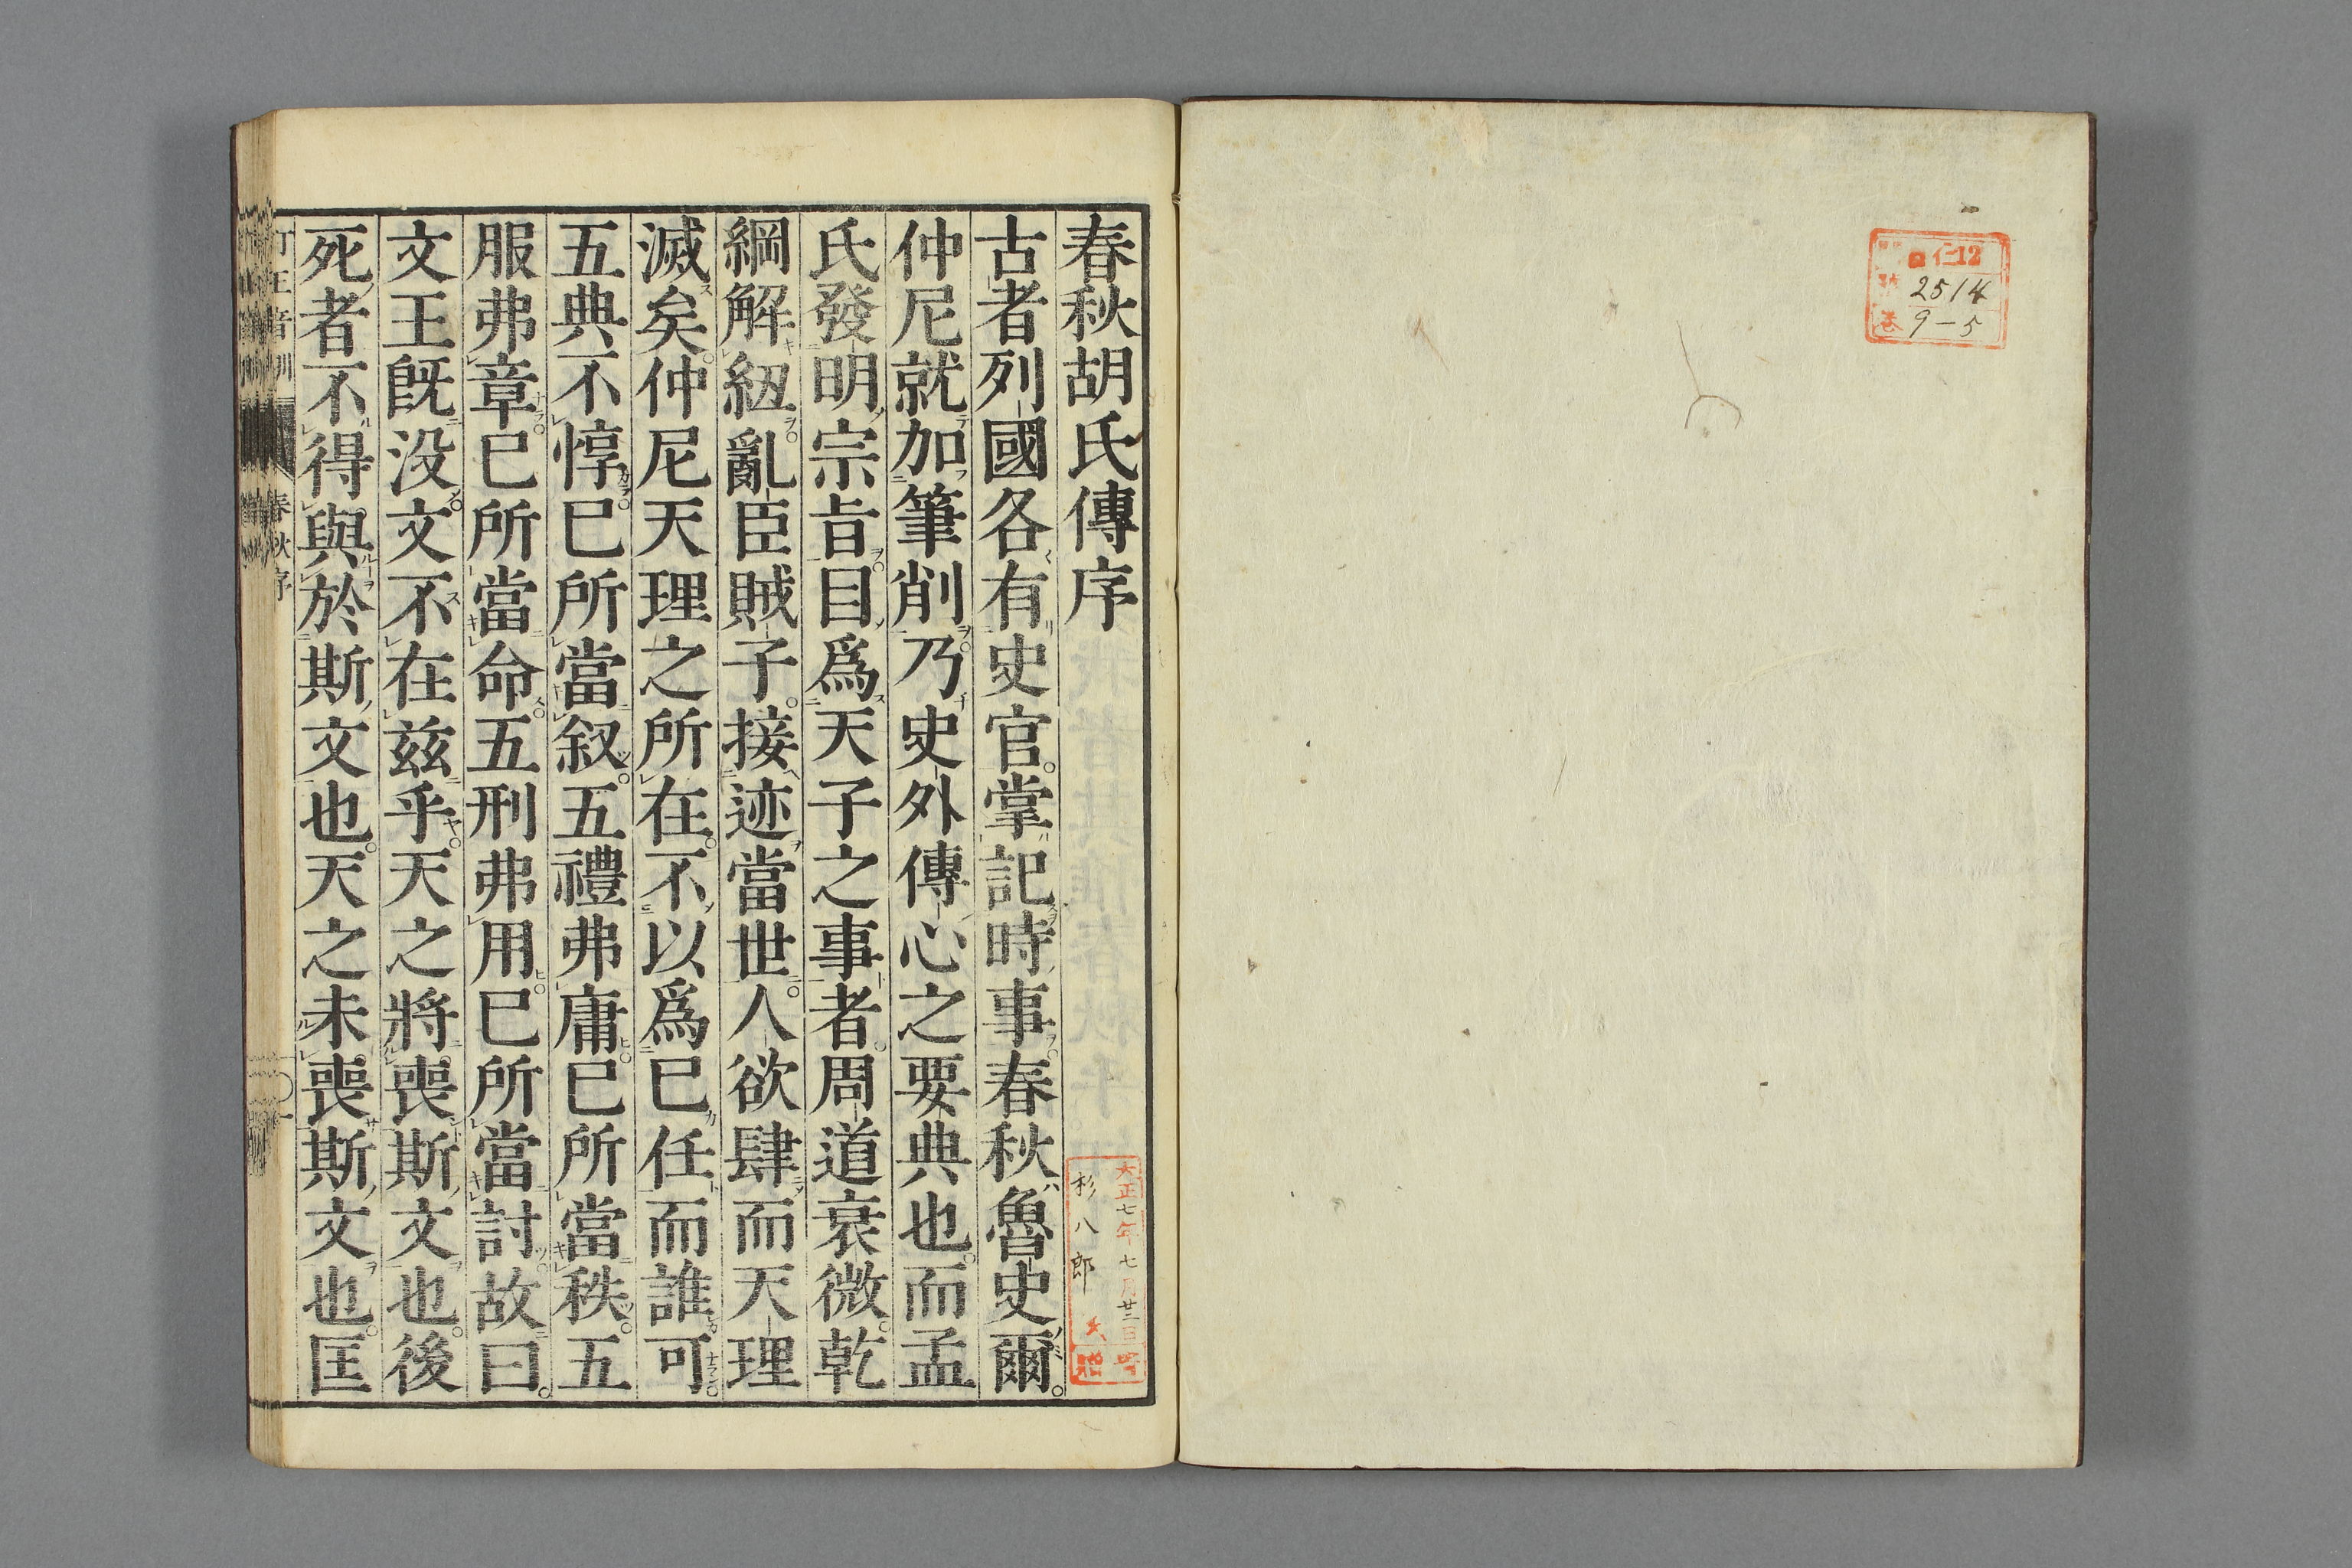 仁12
2514
9-5
春秋胡氏傳序
古者列國各有史官掌記時事春秋魯史爾
仲尼就加筆削乃史外傳心之要典也而孟
氏發明宗旨目爲天子之事者周道衰微乾
綱解紐亂臣賊子接迹當世人欲肆而天理
滅矣仲尼天理之所在不以爲已任而誰可
五典不惇已所當叙五禮弗庸已所當秩五
服弗章已所當命五刑弗用已所當討故曰
文王既没文不在兹乎天之將喪斯文也後
死者不得與於斯文也天之未喪斯文也匡
大正七年七月廿三日
杉八郎氏
春秋序